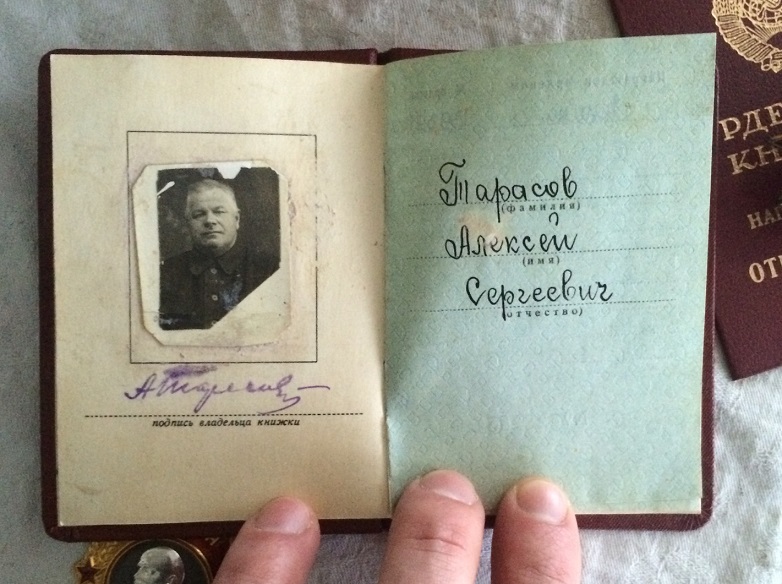 А Тарасов
подпись владельца книжки
Тарасов
(фамилия)
Алексей
(имя)
Сергеевич
(отчество)
РДЕ
КН
НА
ОТ